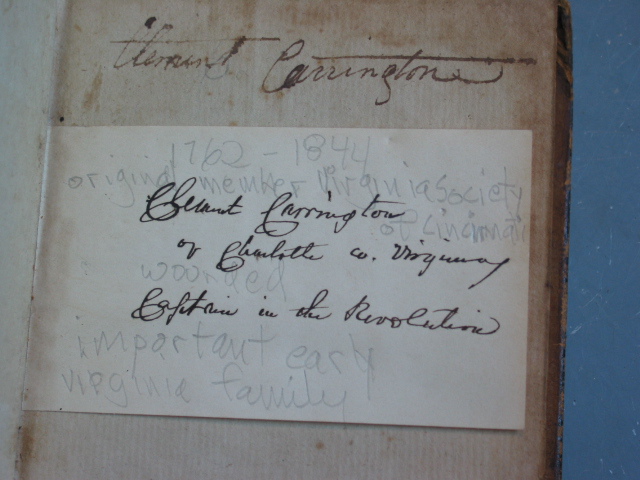 Clement Carrington
1762 - 1844
original member Virginia Society
of Cincinnati
Clement Carrington
of Charlotte co. Virginia
wounded
Captain in the Revolution
important early
virginia family